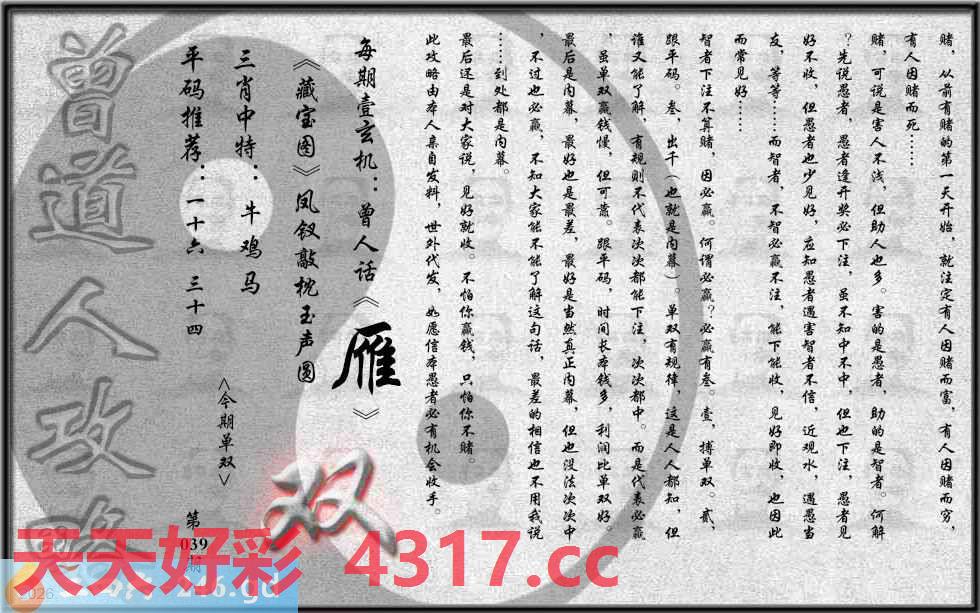 赌，从前有赌的第一天开始，就注定有人因赌而富，有人因赌而穷，
有人因赌而死……
赌，可说是害人不浅，但助人也多。害的是愚者，助的是智者。何解
？先说愚者，愚者逢开奖必下注，虽不知中不中，但也下注，愚者见
好不收，但愚者也少见好，应知愚者遇害智者不信，近观水，遇愚当
友，等等……而智者，不智必赢不注，能下能收，见好即收，也因此
而常见好……
智者下注不算赌，因必赢。何谓必赢？必赢有叁。壹，搏单双。贰，
跟平码。叁，出千（也就是内幕）。单双有规律，这是人人都知，但
谁又能了解，有规则不代表次次都能下注，次次都中。而是代表必赢
，虽单双赢钱慢，但可靠。跟平码，时间长本钱多，利润比单双好。
最后是内幕，最好也是最差，最好是当然真正内幕，但也没法次次中
，不过也必赢，不知大家能不能了解这句话，最差的相信也不用我说
……到处都是内幕。
最后还是对大家说，见好就收。不怕你赢钱，只怕你不赌。
此攻略由本人亲自发料，世外代发，如愿信本愚者必有机会收手。
每期壹玄机：曾人话《雁》
《藏宝图》凤钗敲枕玉声圆
三肖中特：牛 鸡 马
平码推荐：一十六 三十四
<今期单双>
双
第
039
期
曾道人攻略
天天好彩 4317.cc
246.gd
2026